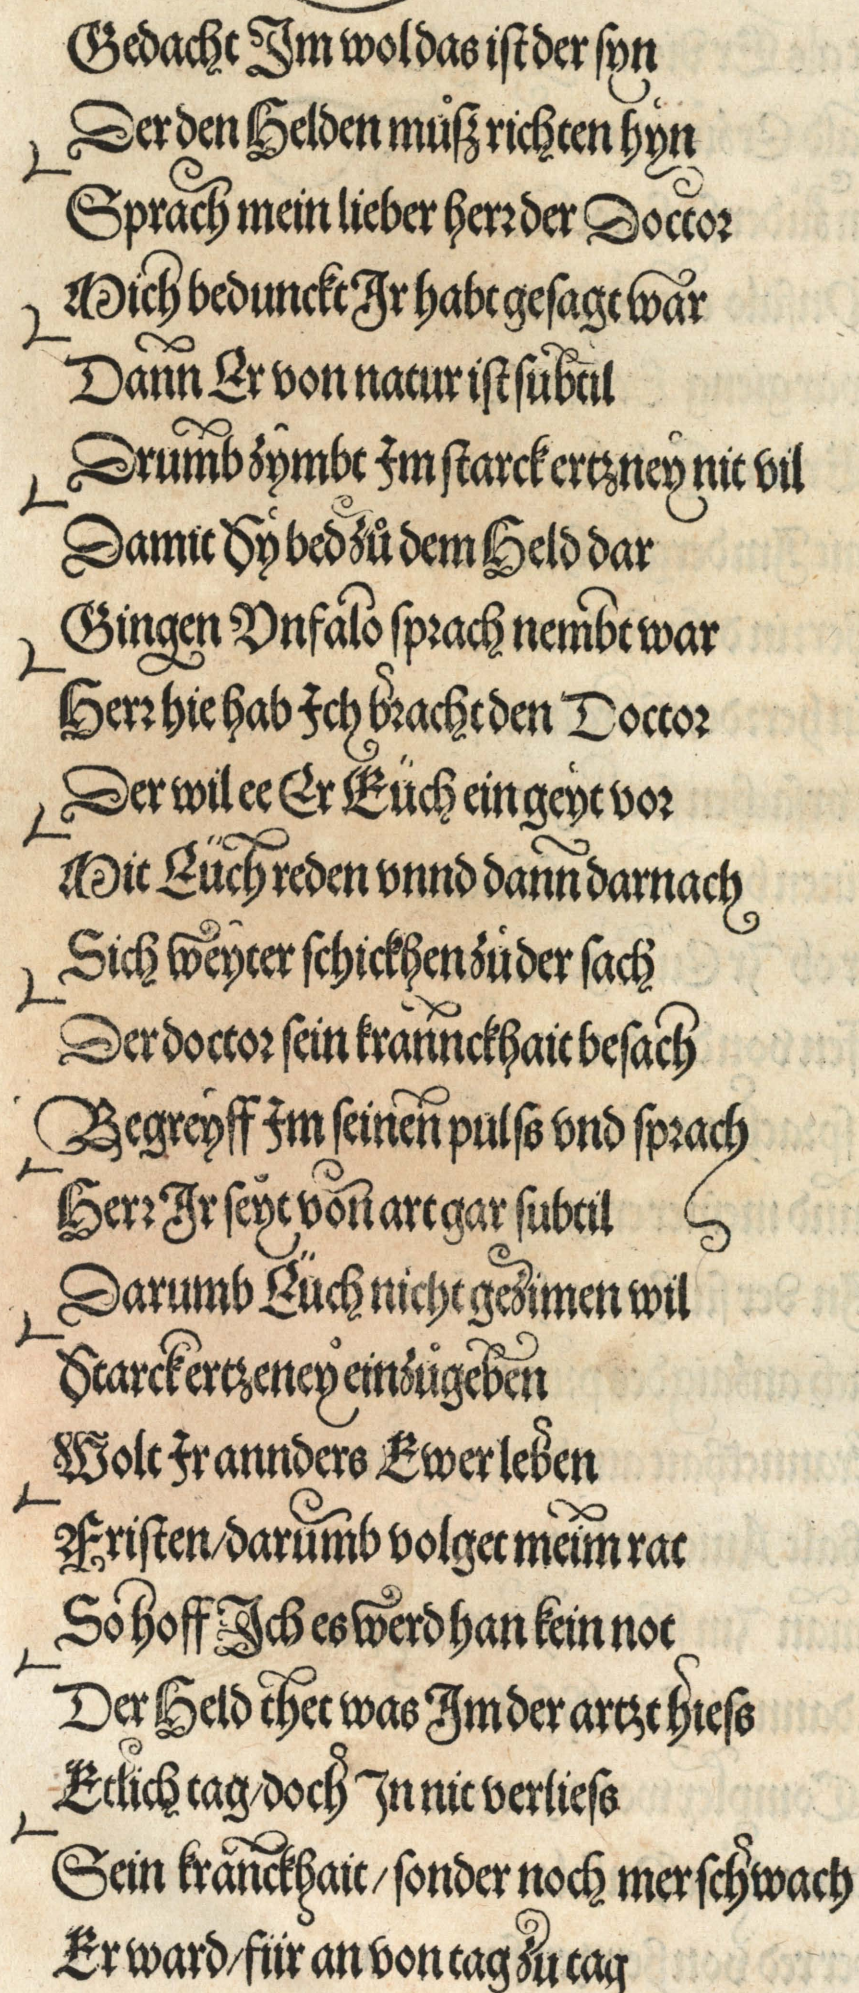 Gedacht Im wol das ist der syn
Der den Helden müsz richten hyn
Sprach mein lieber herr der Doctor
Mich bedunckt Ir habt gesagt war
Dann Er von natur ist subtil
Drumb zymbt Im starck ertzney nit vil
Damit Sy bed zů dem Held dar
Gingen Vnfalo sprach nembt war
Herr hie hab Ich bracht den Doctor
Der wil ee Er Eüch ein geyt vor
Mit Eüch reden vnnd dann darnach
Sich weyter schickhen zů der sach
Der doctor sein krannckhait besach
Begreyff Im seinen pulss vnd sprach
Herr Ir seyt von art gar subtil
Darumb Eüch nicht gezimen wil
Starck ertzeney einzůgeben
Wolt Ir annders Ewer leben
Fristen/darumb volget meim rat
So hoff Ich es werd han kein not
Der Held thet was Im der artzt hiess
Etlich tag/doch In nit verliess
Sein kranckhait/sonder noch mer schwach
Er ward/für an von tag zu tag